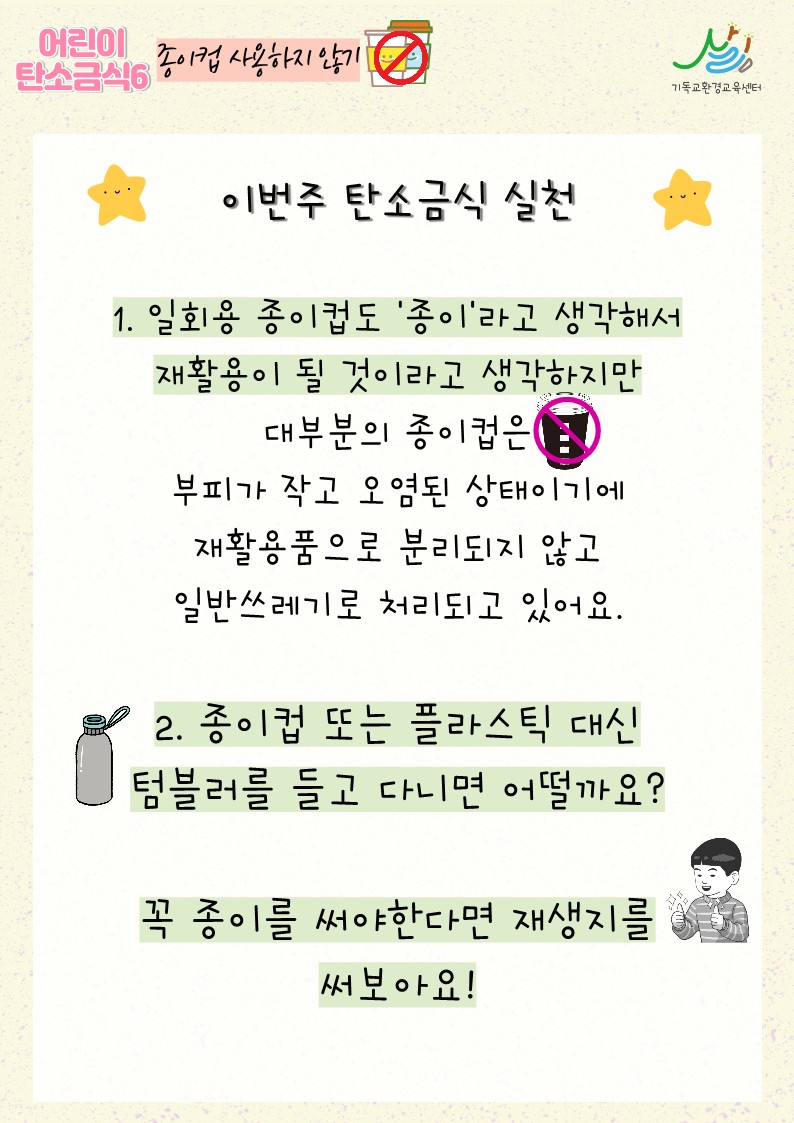 어린이
탄소금식6
종이컵 사용하지 않기
기독교환경교육센터
이번주 탄소금식 실천
1. 일회용 종이컵도 '종이'라고 생각해서
재활용이 될 것이라고 생각하지만
대부분의 종이컵은
부피가 작고 오염된 상태이기에
재활용품으로 분리되지 않고
일반쓰레기로 처리되고 있어요.
2. 종이컵 또는 플라스틱 대신
텀블러를 들고 다니면 어떨까요?
꼭 종이를 써야한다면 재생지를
써보아요!